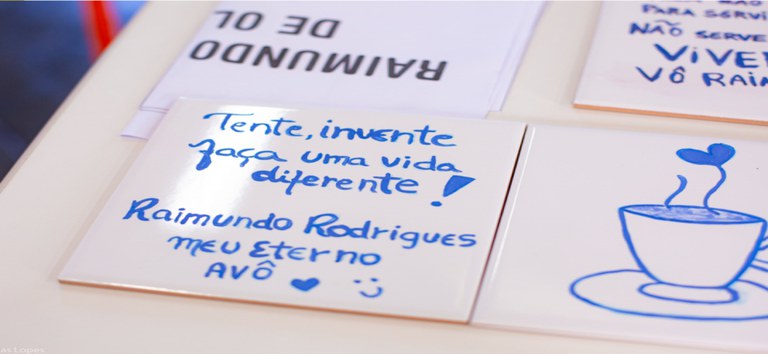 RAIMUNDO
DE OL
PARA SERVI
NÃO SERVE
VIVER
VÔ RAIM
Tente, invente
faça uma vida
diferente!
Raimundo Rodrigues
meu Eterno
AVÔ